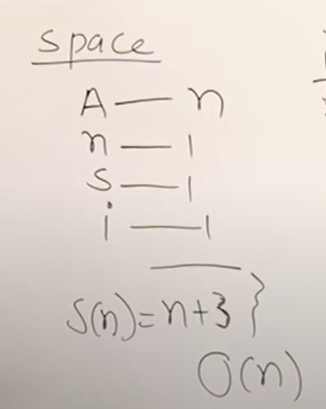 space
A — n
n — 1
s — 1
i — 1
S(n) = n+3 }
O(n)